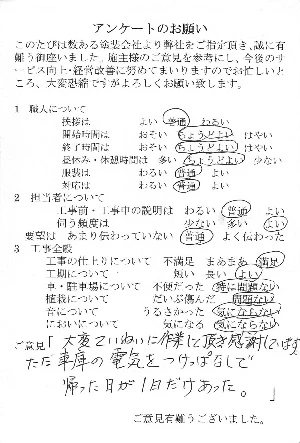 アンケートのお願い
このたびは数ある塗装会社より弊社をご指定頂き、誠に有
難う御座いました。施主様のご意見を参考にし、今後のサ
ービス向上・経営改善に努めてまいりますのでお忙しいと
ころ、大変恐縮ですがよろしくお願い致します。
1 職人について
挨拶は よい 普通 わるい
開始時間は おそい ちょうどよい はやい
終了時間は おそい ちょうどよい はやい
昼休み・休憩時間は 多い ちょうどよい 少ない
服装は わるい 普通 よい
対応は わるい 普通 よい
2 担当者について
工事前・工事中の説明は わるい 普通 よい
伺う頻度は 少ない 多い よい
要望は あまり伝わっていない 普通 よく伝わった
3 工事全般
工事の仕上りについて 不満足 まあまあ 満足
工期について 短い 長い よい
車・駐車場について 不便だった 特に問題ない
植栽について だいぶ傷んだ 問題ない
音について うるさかった 気にならない
においについて 気になる 気にならない
ご意見「大変ていねいに作業して頂き感謝しています。
ただ車庫の電気をつけっぱなしで
帰った日が1日だけあった。」
ご意見有難うございました。